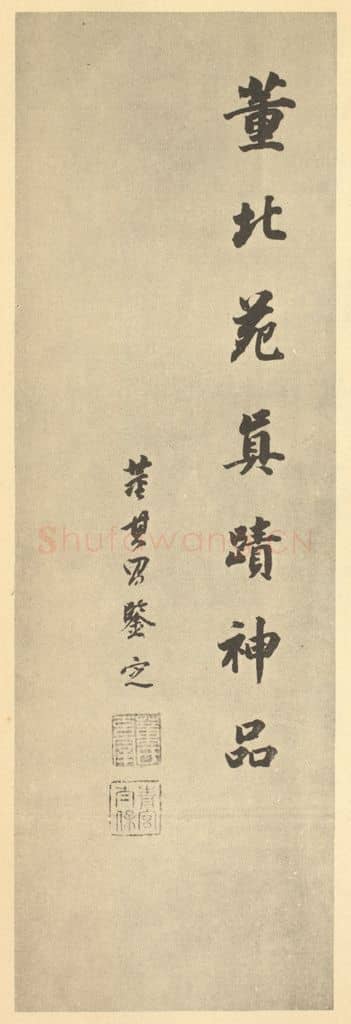 董北苑真蹟神品
董其昌鑒定
青宮太保
Shufawang.CN